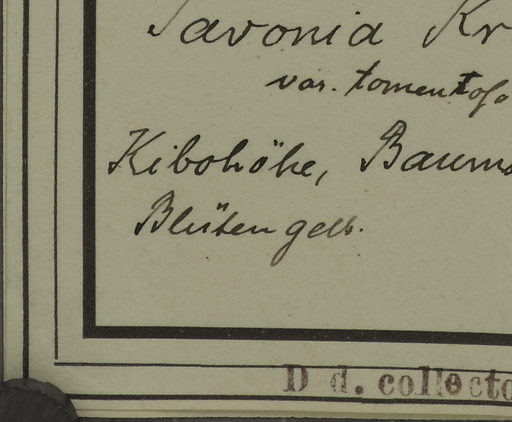 Pavonia Kr
var. tomentosa
Kibohöhe, Baums
Blüten gelb.
D d. collecto